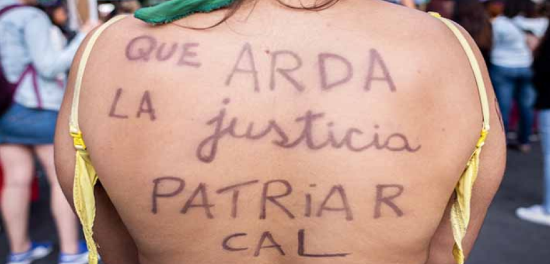 QUE ARDA
LA justicia
PATRiAR
CAL